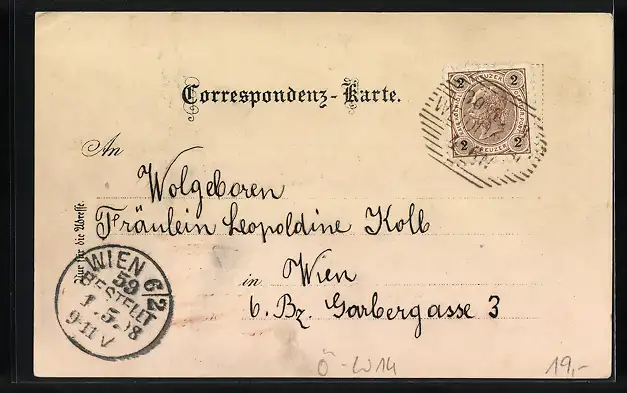 Correspondenz-Karte.
2 KREUZER 2
2 KREUZER 2
An
Wolgeboren
Fräulein Leopoldine Kolb
in Wien
6. Bz. Garbergasse 3
Nur für die Adresse.
WIEN 6/2
59
BESTELLT
1.5.98
9-11 V
Ö-W14
19,-